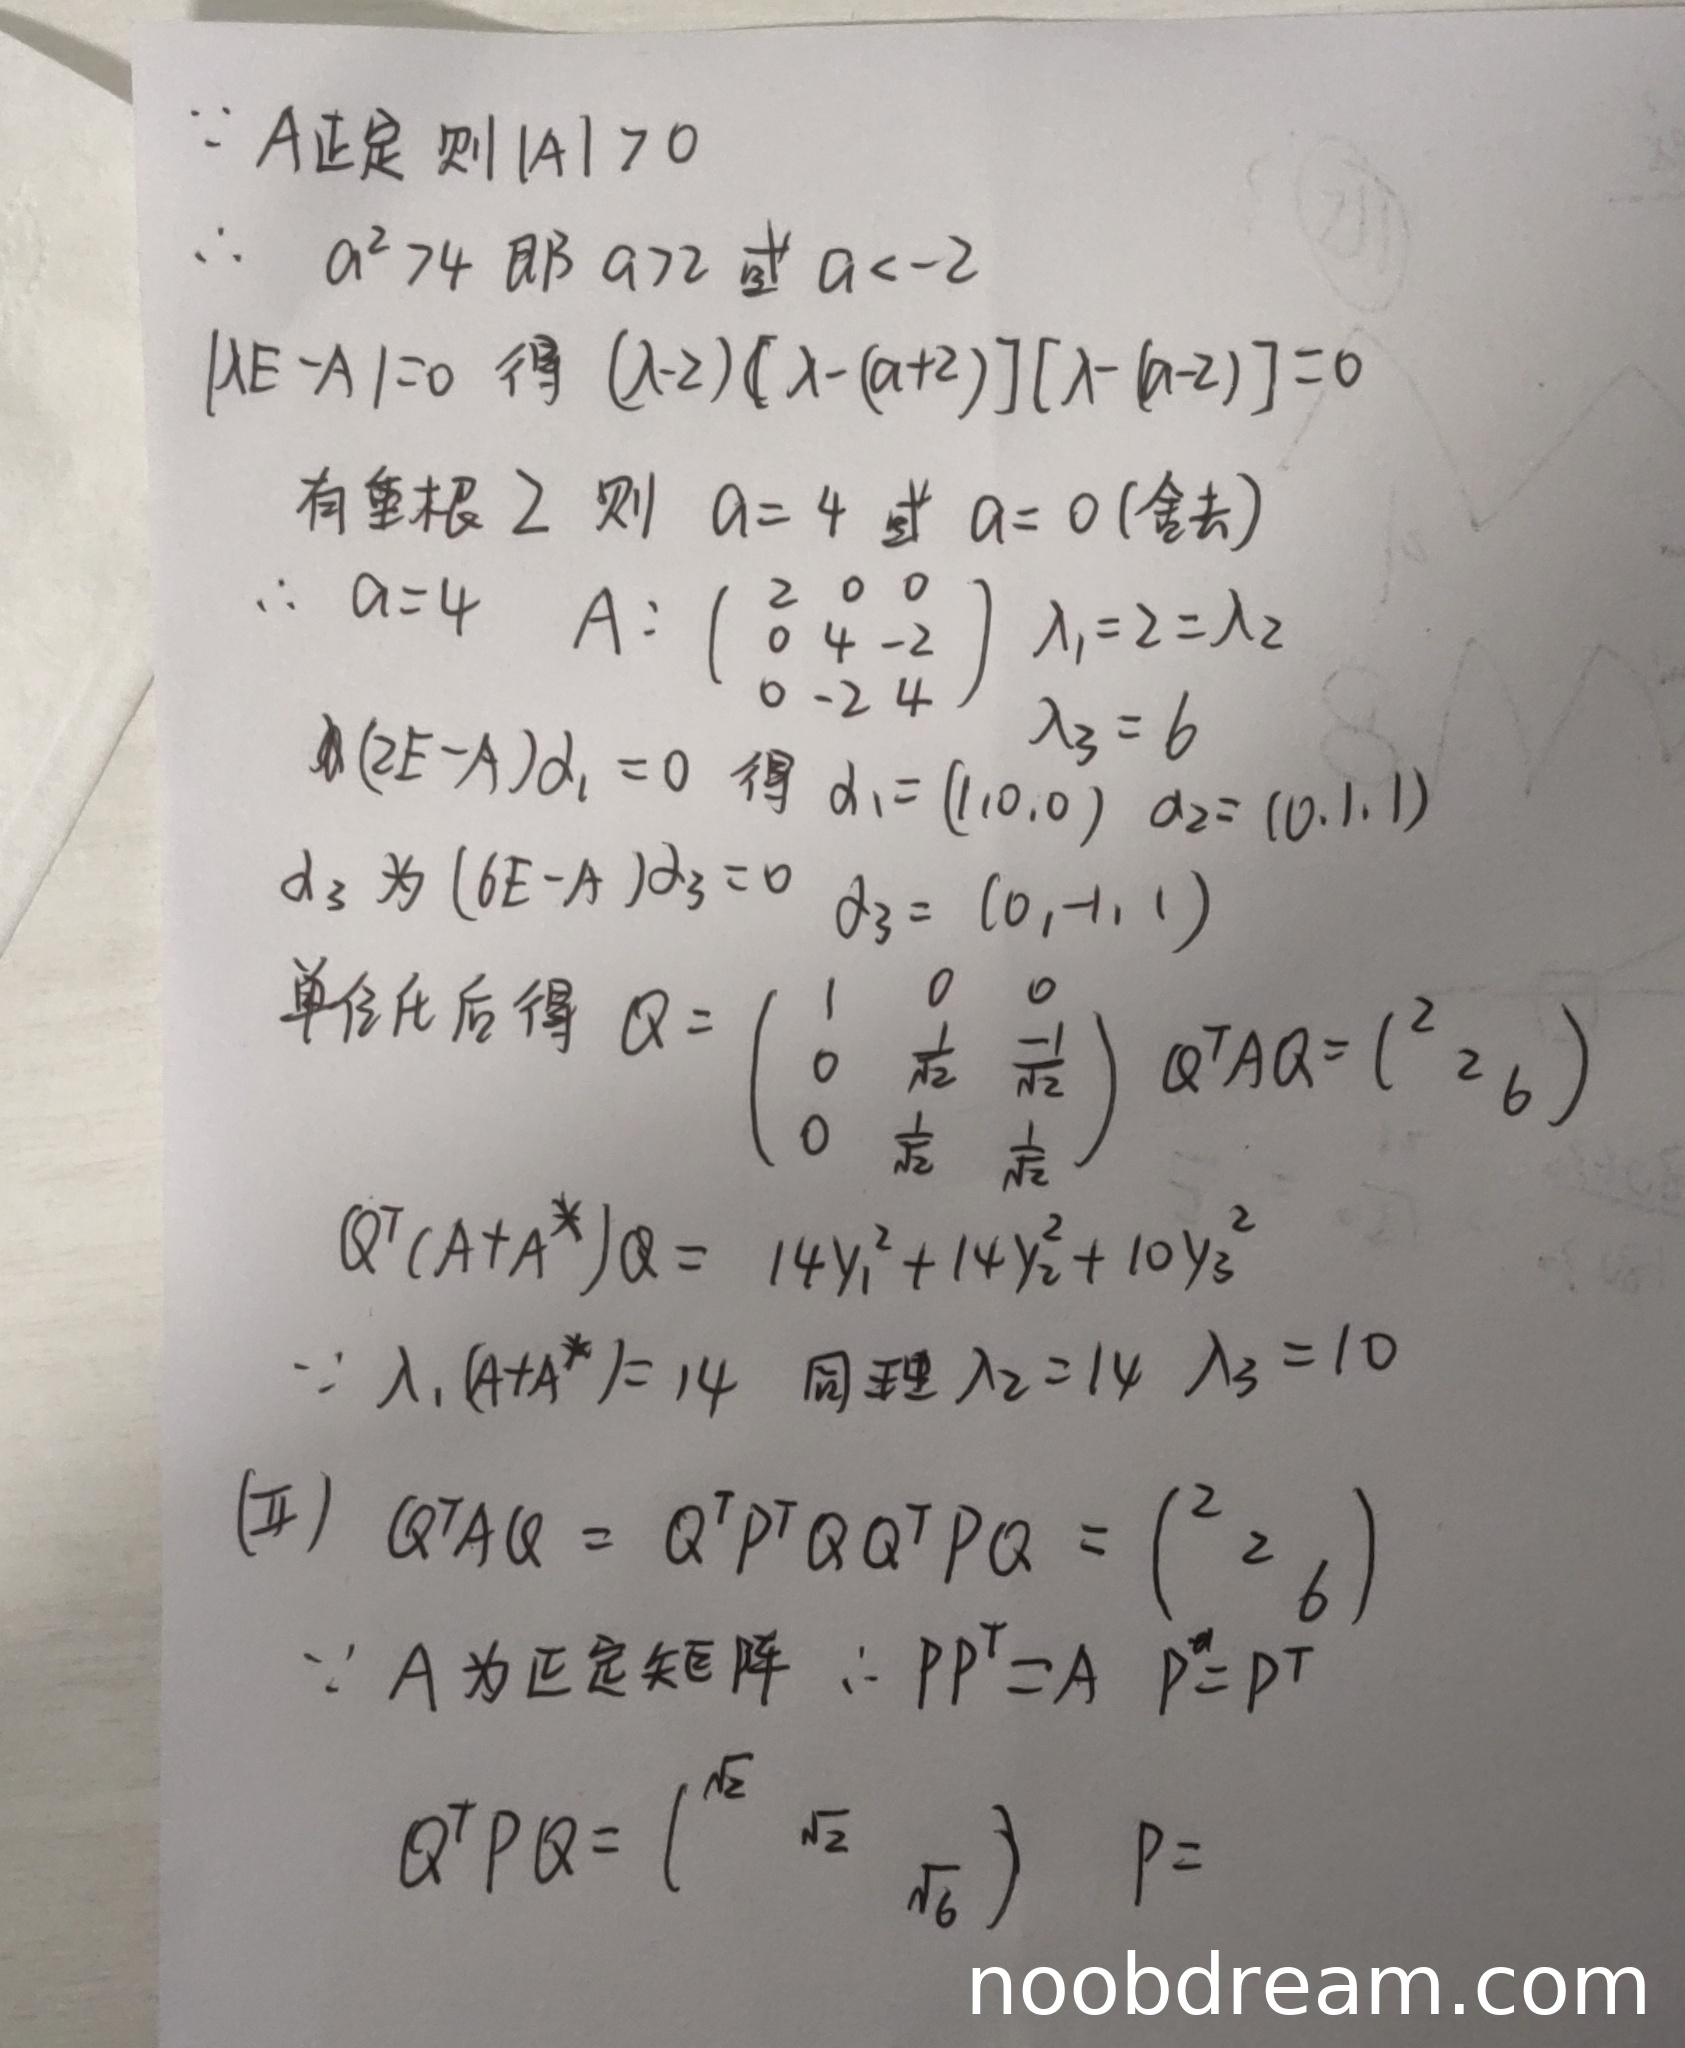 ∵ A正定 则 |A| > 0
∴ a² > 4 即 a>2 或 a < -2
|λE - A| = 0 得 (λ-2)[λ-(a+2)][λ-(a-2)] = 0
有重根 2 则 a = 4 或 a = 0 (舍去)
∴ a = 4 A: ( 2 0 0 ) λ₁ = 2 = λ₂
0 4 -2
0 -2 4 λ₃ = 6
(2E-A)α₁ = 0 得 α₁ = (1,0,0) α₂ = (0,1,1)
α₃ 为 (6E-A)α₃ = 0 α₃ = (0,-1,1)
单位化后得 Q = ( 1 0 0 ) QᵀAQ = ( 2 2 6 )
0 1/√2 -1/√2
0 1/√2 1/√2
Qᵀ(A+A*)Q = 14y₁² + 14y₂² + 10y₃²
∵ λ₁(A+A*) = 14 同理 λ₂ = 14 λ₃ = 10
(Ⅱ) QᵀAQ = QᵀPᵀQQᵀPQ = ( 2 2 6 )
∵ A 为正定矩阵 ∴ PPᵀ = A P = Pᵀ
QᵀPQ = ( √2 √2 √6 ) P =
noobdream.com